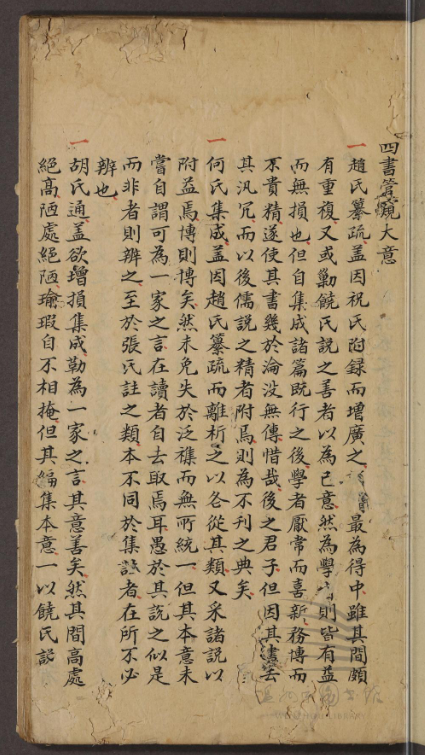 四書管窺大意
一趙氏纂疏蓋因祝氏附録而增廣之 最為得中雖其間頗
有重複又或勦饒氏說之善者以為己意然為學 則皆有益
而無損也但自集成諸篇既行之後學者厭常而喜新務博而
不貴精遂使其書幾於淪没無傳惜哉後之君子但因其書去
其汎冗而以後儒說之精者附焉則為不刊之典矣
一何氏集成蓋因趙氏纂疏而離析之以各從其類又采諸說以
附益焉博則博矣然未免失於泛襍而無所統一但其本意未
嘗自謂可為一家之言在讀者自去取焉耳愚於其說之似是
而非者則辨之至於張氏註之類本不同於集 者在所不必
辨也
一胡氏通蓋欲增損集成勒為一家之言其意善矣然其間高處
絕髙陋處絕陋瑜瑕自不相掩但其編集本意一以饒氏說